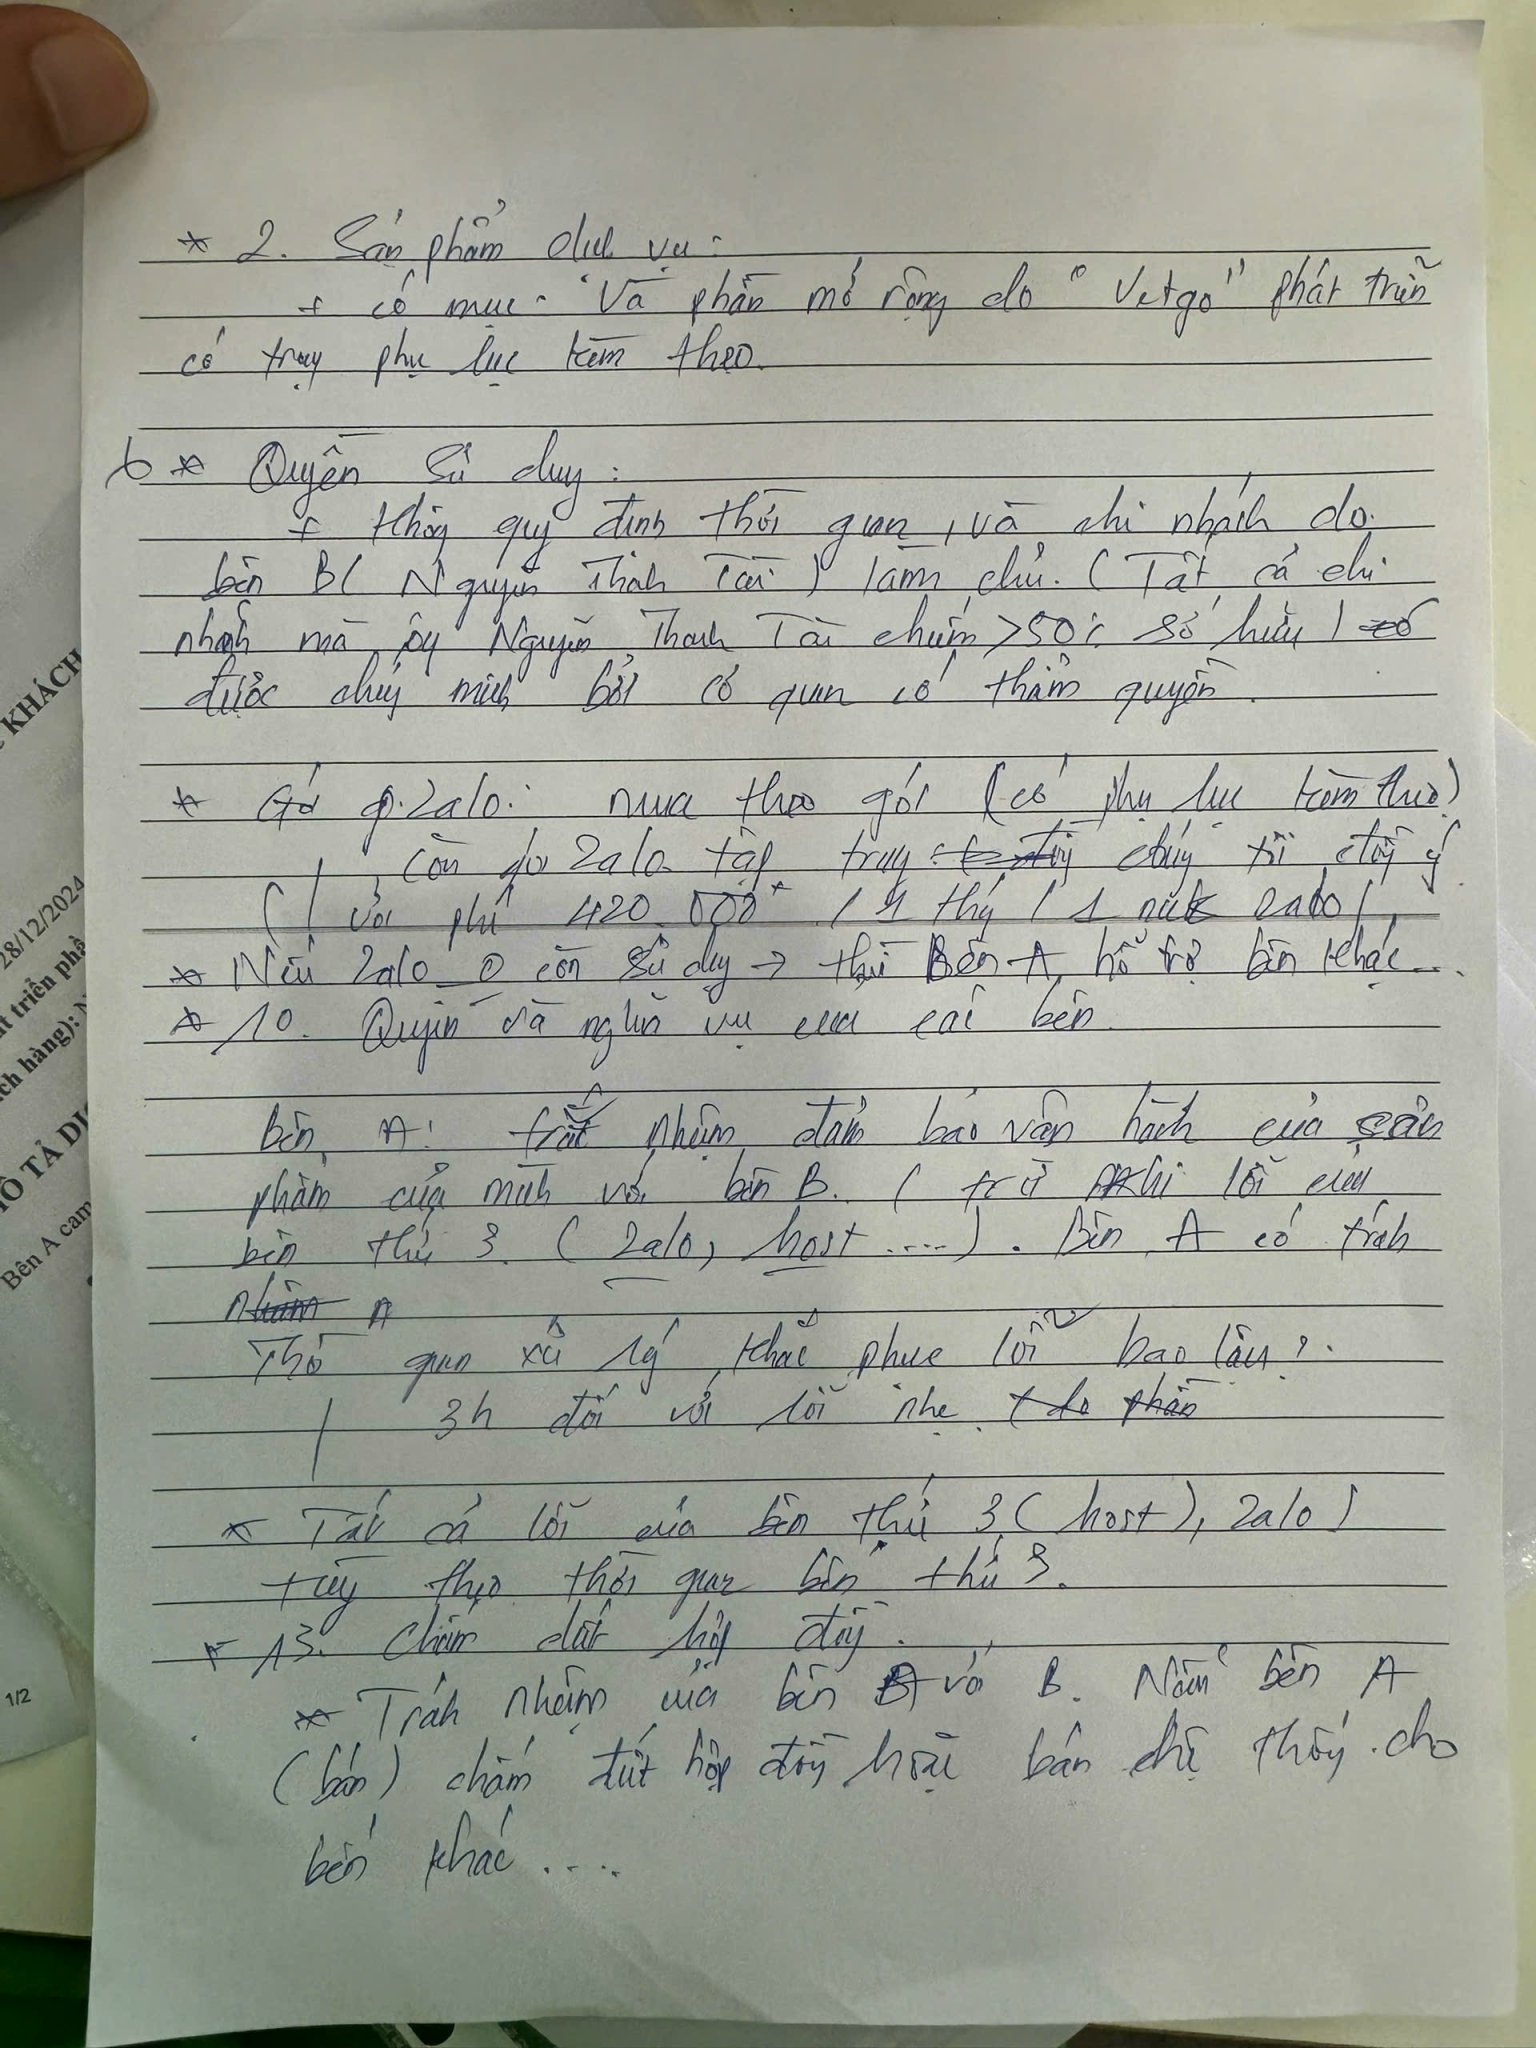 * 2. Sản phẩm dịch vụ:
+ có mục: "Và phần mở rộng do "Vetgo" phát triển
có trong phụ lục kèm theo.
6 * Quyền sử dụng:
+ Không quy định thời gian, và chi nhánh do
bên B ( Nguyễn Thành Tài ) làm chủ. ( Tất cả chi
nhánh mà ông Nguyễn Thành Tài chiếm >50% sở hữu )
được chứng minh bởi cơ quan có thẩm quyền.
* Gói Zalo: mua theo gói (có phụ lục kèm theo)
còn do Zalo tập trung chúng tôi đồng ý
( với phí 420.000đ / 1 tháng / 1 Zalo ),
* Nếu Zalo 0 còn sử dụng → thì Bên A hỗ trợ bên khác...
* 10. Quyền và nghĩa vụ của các bên.
Bên A: trách nhiệm đảm bảo vận hành của sản
phẩm của mình với bên B. ( trừ khi lỗi của
bên thứ 3. ( Zalo, host ....) . Bên A có trách
Thời gian xử lý khắc phục lỗi bao lâu ?
3h đối với lỗi nhẹ
* Tất cả lỗi của bên thứ 3 ( host ), Zalo )
tùy theo thời gian bên thứ 3.
* 13. Chấm dứt hợp đồng.
* Trách nhiệm của bên A với B. Nếu bên A
(bán) chấm dứt hợp đồng hoặc bán hệ thống cho
bên khác ....
KHÁCH
28/12/2024
t triển phầ
ch hàng): N
Ô TẢ DỊ
Bên A cam
1/2